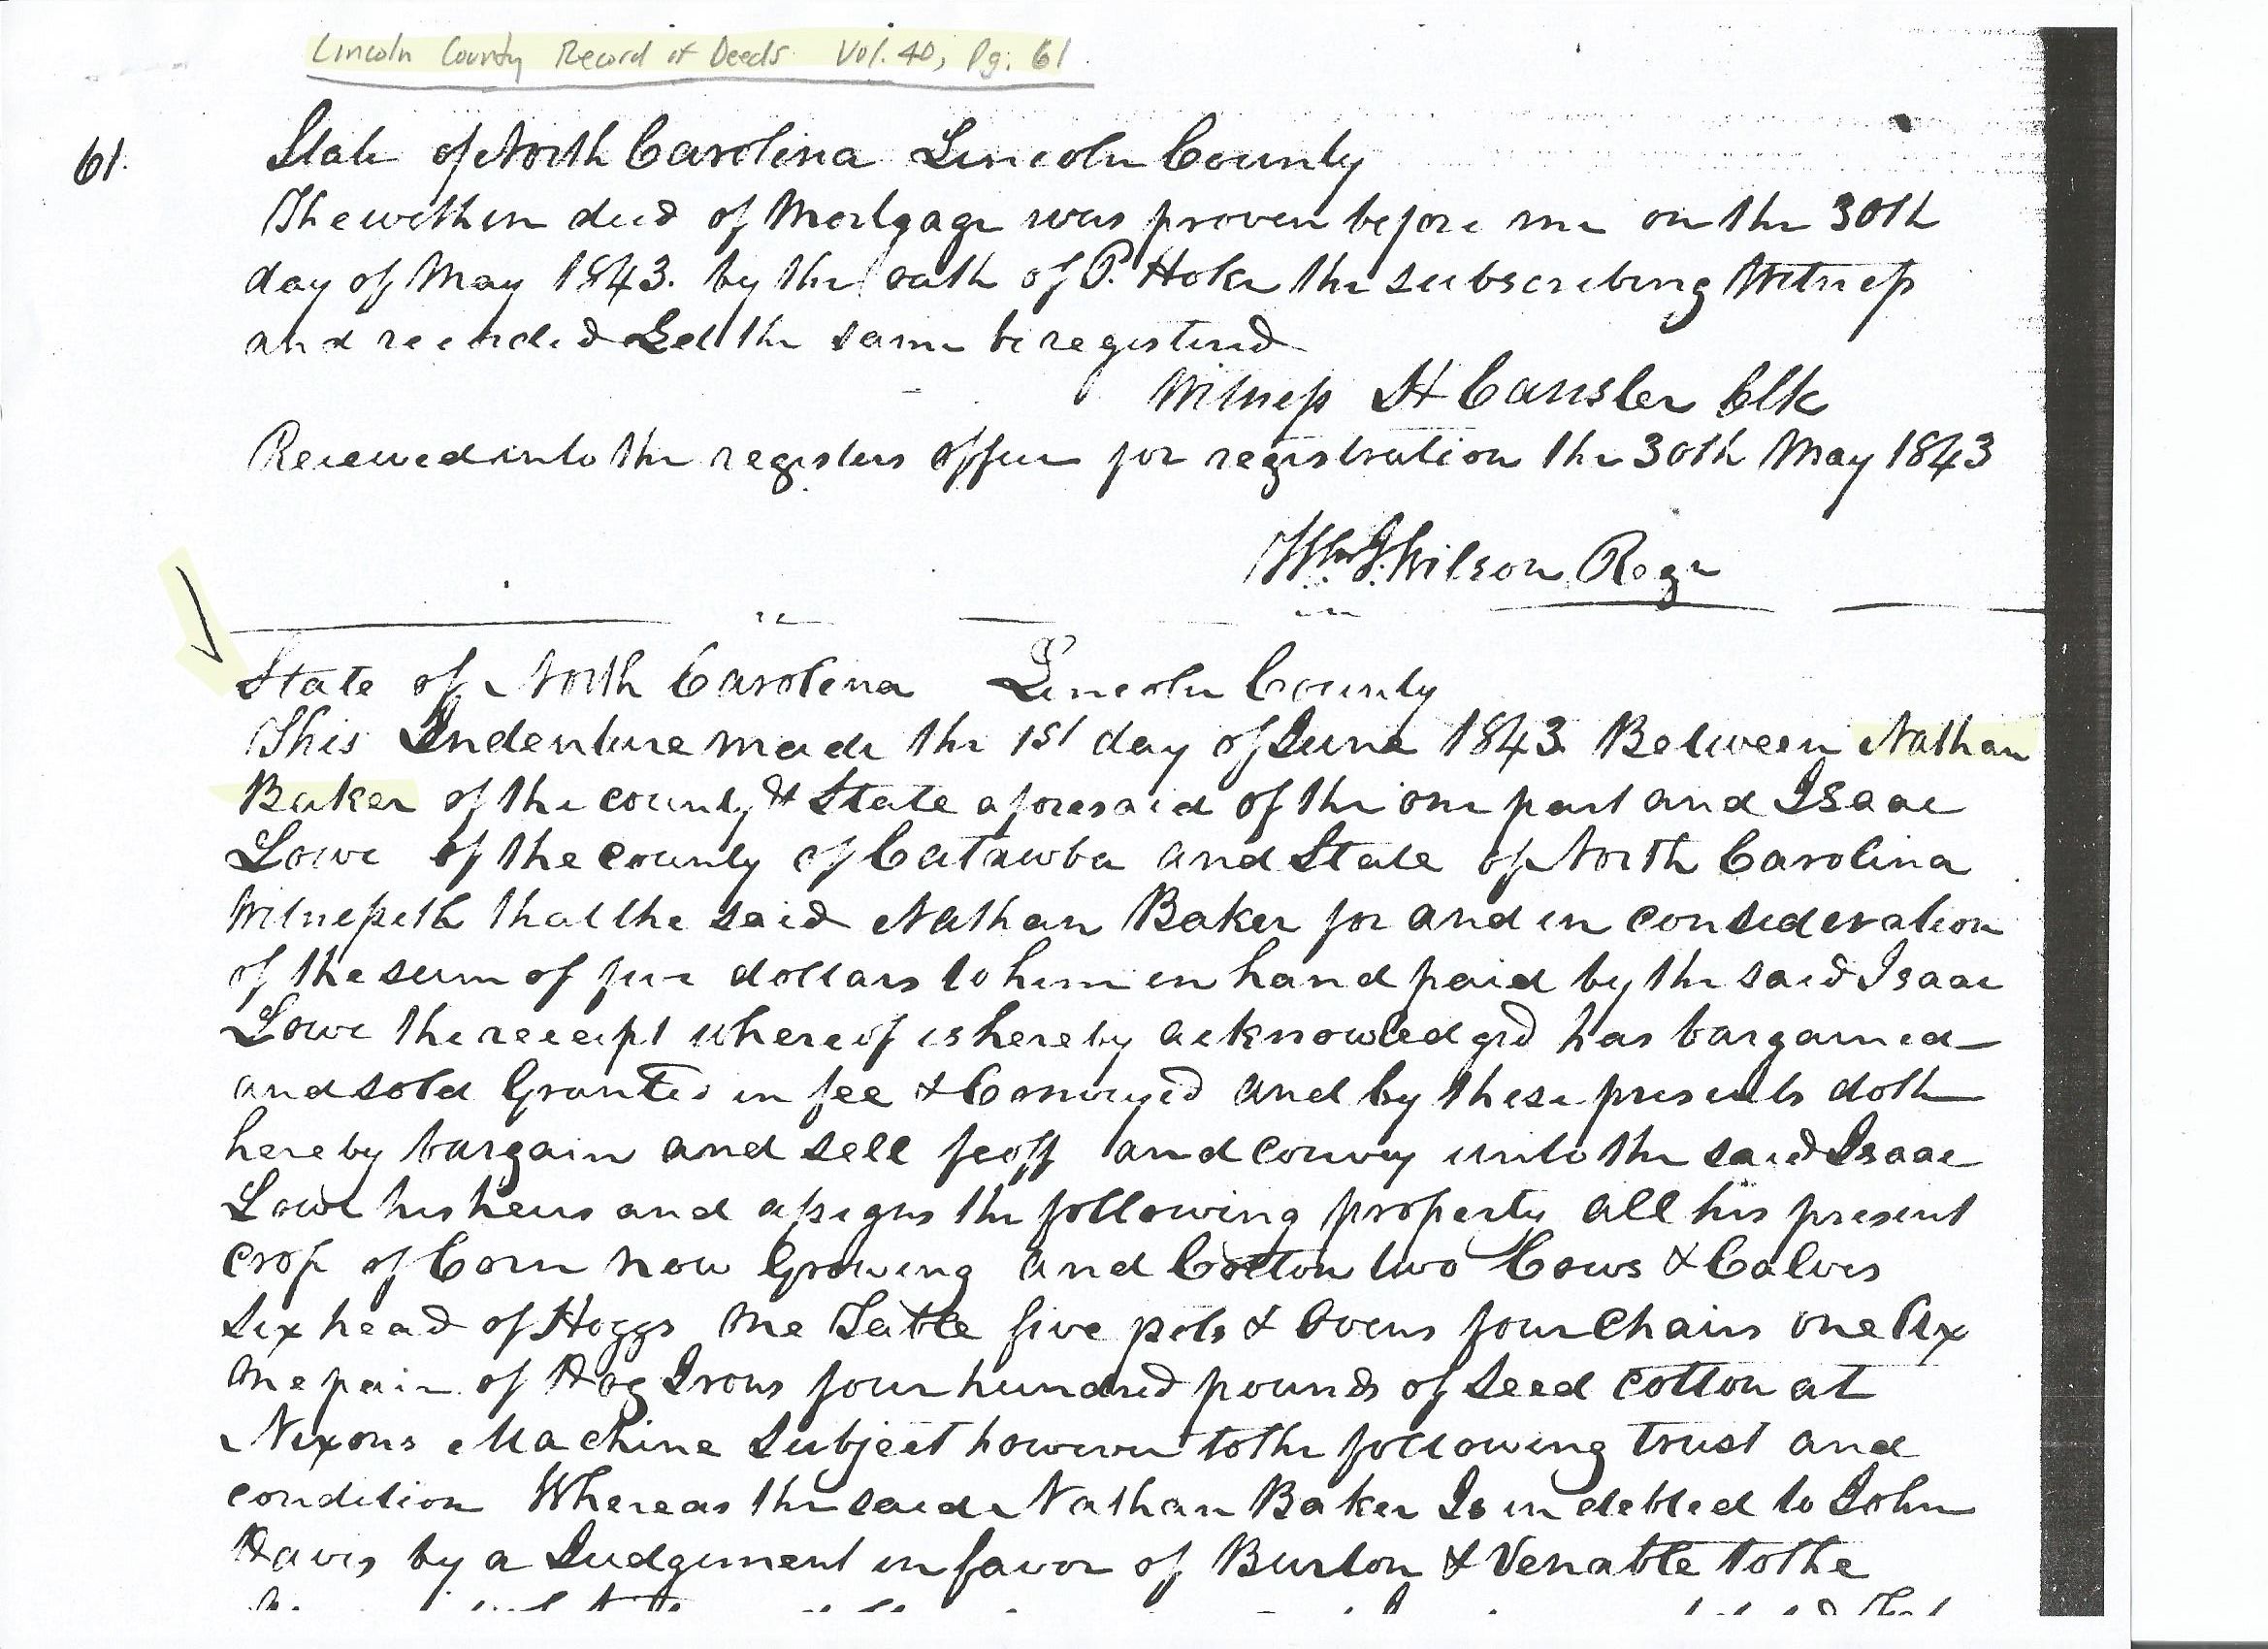 Lincoln County Record of Deeds Vol. 40, Pg. 61
61.
State of North Carolina Lincoln County
The within deed of Mortgage was proven before me on the 30th
day of May 1843. by the oath of P. Hoke the subscribing Witness
and recorded Let the same be registered
Witness H Cansler Clk
Received into the registers office for registration the 30th May 1843
Wm. J. Wilson Regr
State of North Carolina Lincoln County
This Indenture made the 1st day of June 1843 Between Nathan
Baker of the county & State aforesaid of the one part and Isaac
Lowe of the county of Catawba and State of North Carolina
Witnesseth that the said Nathan Baker for and in consideration
of the sum of five dollars to him in hand paid by the said Isaac
Lowe the receipt whereof is hereby acknowledged has bargained
and sold Granted in fee & Conveyed and by these presents doth
hereby bargain and sell feoff and convey unto the said Isaac
Lowe his heirs and assigns the following property all his present
crop of Corn now Growing and Cotton two Cows & Calves
Six head of Hoggs one Table five pots & Ovens four Chairs one Ax
one pair of Dog Irons four hundred pounds of Seed cotton at
Nixons Machine Subject however to the following trust and
condition Whereas the said Nathan Baker Is indebted to John
Davis by a Judgement in favor of Burton & Venable to the